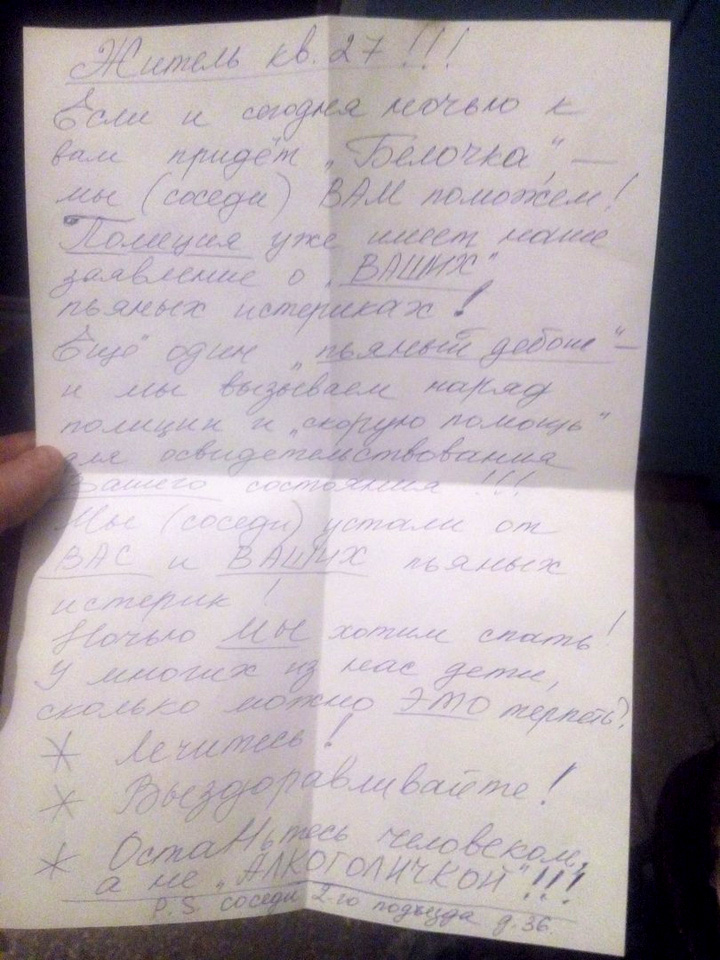 Житель кв. 27!!!
Если и сегодня ночью к
вам придёт „Белочка" —
мы (соседи) ВАМ поможем!
Полиция уже имеет наше
заявление о „ВАШИХ"
пьяных истериках!
Ещё один „пьяный дебош" —
и мы вызываем наряд
полиции и „скорую помощь"
для освидетельствования
Вашего состояния!!!
Мы (соседи) устали от
ВАС и ВАШИХ пьяных
истерик!
Ночью МЫ хотим спать!
У многих из нас дети,
сколько можно ЭТО терпеть?
* Лечитесь!
* Выздоравливайте!
* ОстаНьтесь человеком,
а не „АЛКОГОЛИЧКОЙ"!!!
P.S. соседи 2-го подъезда д. 36.